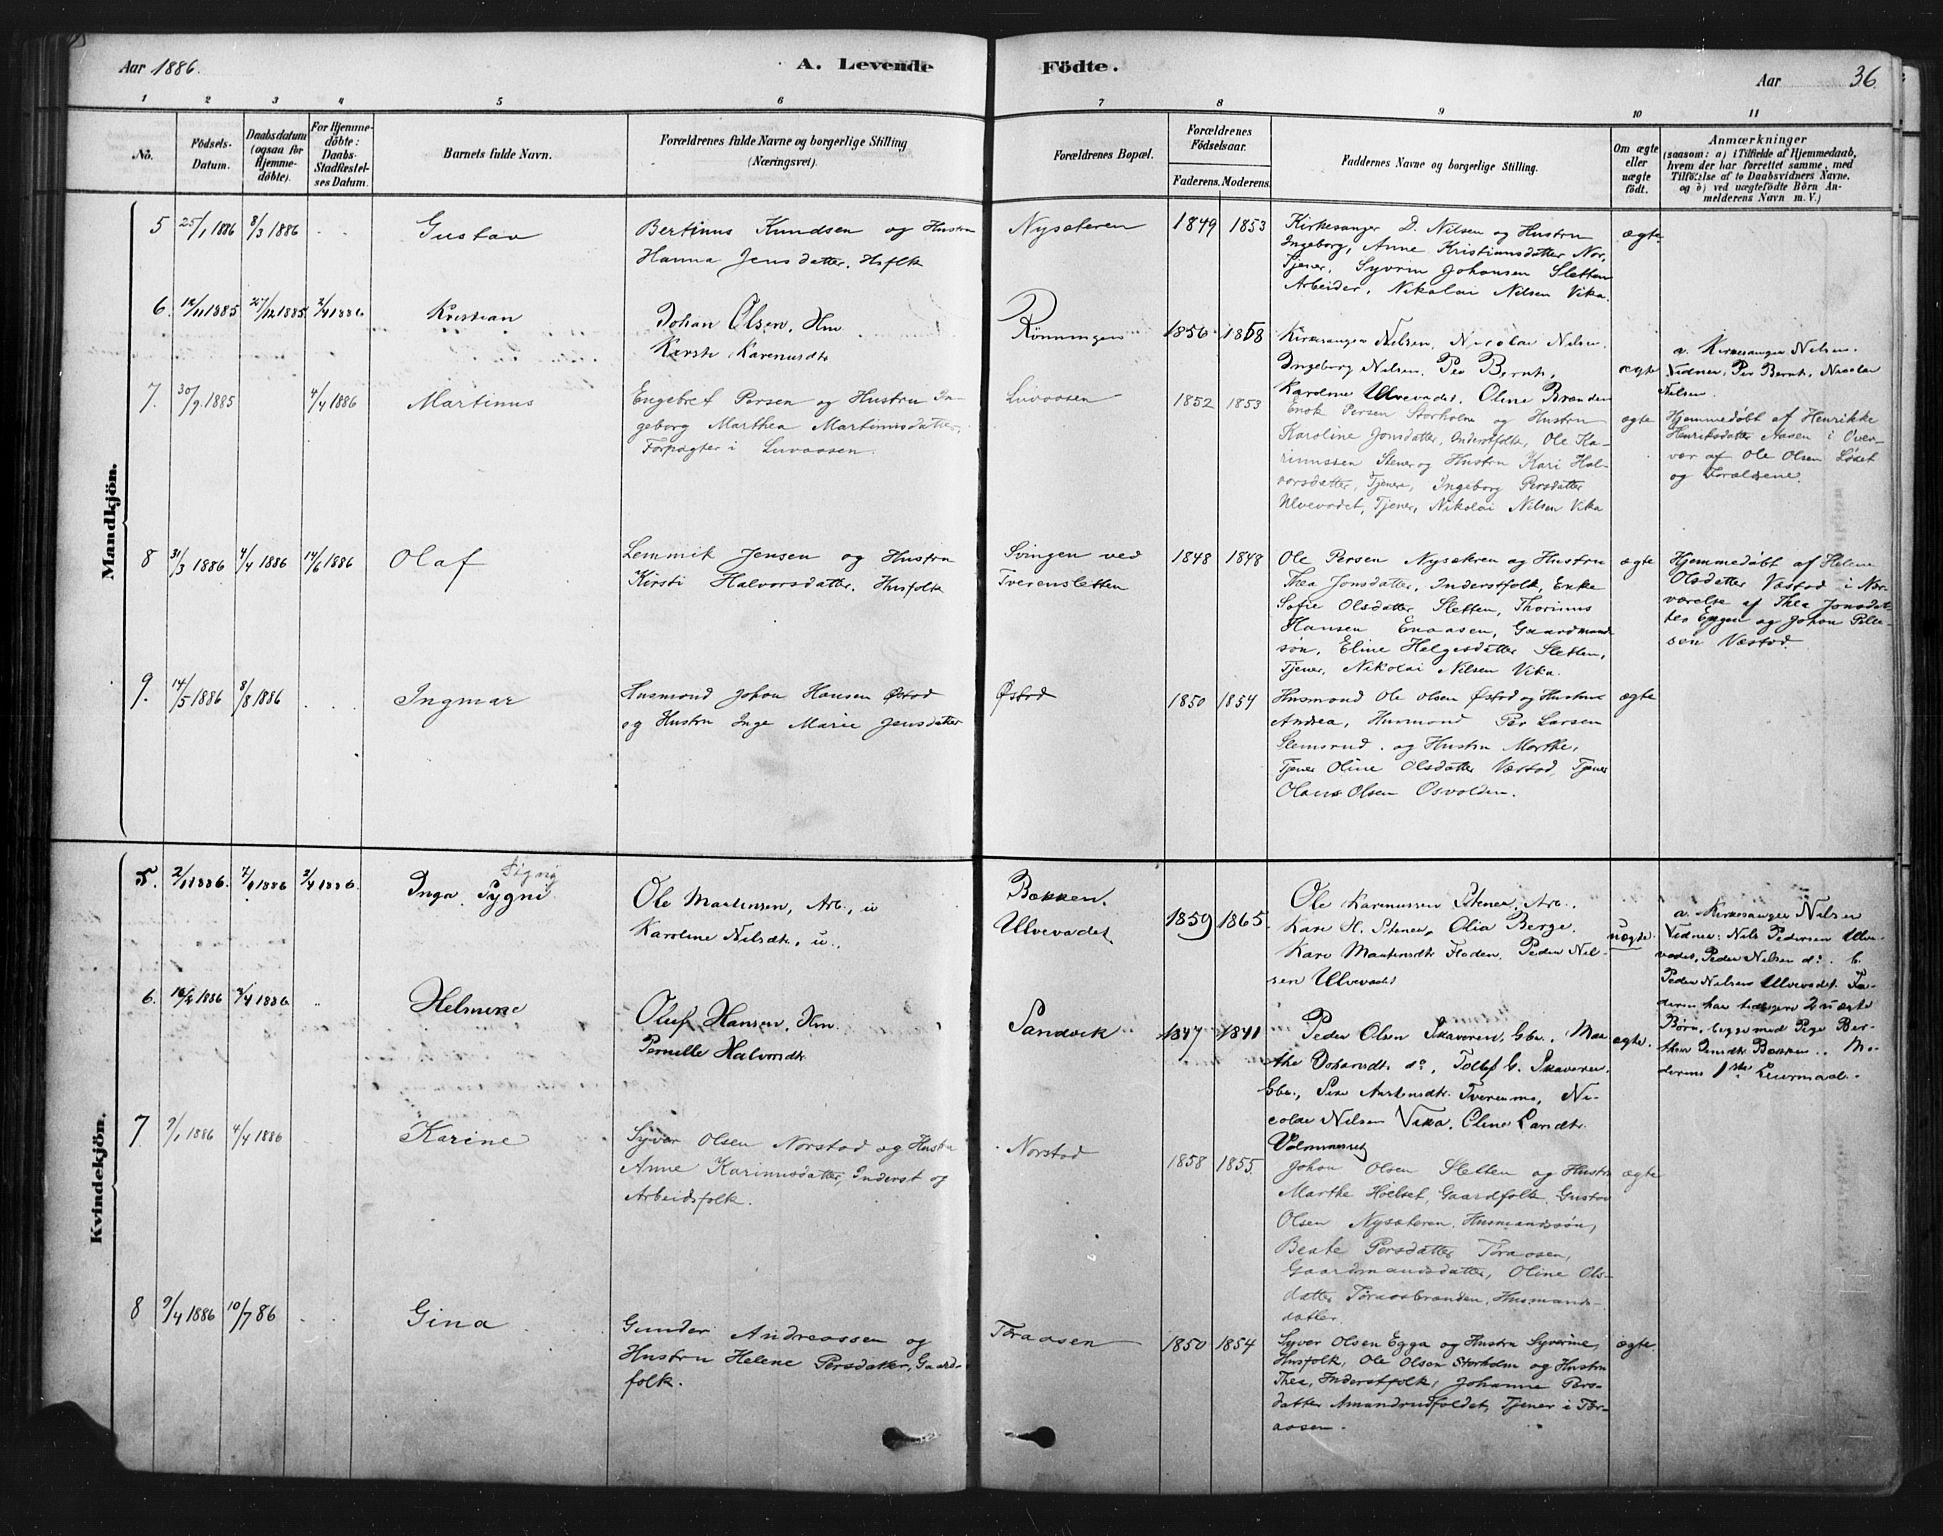 Aar 1886.
A. Levende Födte.
Aar 36
1 2 3 4 5 6 7 8 9 10 11
No.
Födsels-
Datum.
Daabsdatum
(ogsaa for
Hjemme-
döbte).
For Hjemme-
döbte:
Daabs-
Stadfæstel-
ses Datum.
Barnets fulde Navn.
Forældrenes fulde Navne og borgerlige Stilling
(Næringsvei).
Forældrenes Bopæl.
Forældrenes
Födselsaar.
Faderens. Moderens.
Faddernes Navne og borgerlige Stilling.
Om ægte
eller
uægte
födt.
Anmærkninger
(saasom: a) i Tilfælde af Hjemmedaab,
hvem der har forrettet samme, med
Tilföielse af to Daabsvidners Navne.
og b) ved uægtefödte Börn An-
melderens Navn m. V.)
Mandkjön.
5 25/1 1886 8/3 1886
Gustav
Bertinus Knudsen og Hustru
Hanna Jensdatter, Hsflk
Nysæteren
1849 1853
Kirkesanger D. Nilsen og Hustru
Ingeborg, Anne Kristiansdatter Nor,
Tjener, Syvrin Johansen Sletten
Arbeider, Nikolai Nilsen Vika.
ægte
6. 12/11 1885 27/12 1885 2/4 1886
Kristian
Johan Olsen, Hm
Kirsti Karenusdtr
Rönningen
1856 1858
Kirkesanger Nilsen, Nicolai Nilsen
Ingeborg Nilsen, Per Bernh,
Karoline Ulvevadet, Oline Brænden
ægte
a. Kirkesanger Nilsen.
Vidner, Per Bernh, Nicolai
Nilsen.
7. 30/9 1885 4/4 1886
Martinus
Engebret Persen og Hustru In-
geborg Marthea Martinusdatter,
Forpagter i Luvaasen
Luvaasen
1852 1853
Enok Persen Storholm og Hustru
Karoline Jonsdatter, Inderstfolk, Ole Ka-
rinussen Stener og Hustru Kari Hal-
vorsdatter, Tjener, Ingeborg Persdatter
Ulvevadet, Tjener, Nikolai Nilsen Vika
ægte
Hjemmedøbt af Henrikke
Henriksdatter Aasen i Over-
vær af Ole Olsen Lødet
og Forældrene.
8 31/3 1886 4/4 1886 14/6 1886
Olaf
Lemmik Jensen og Hustru
Kirsti Halvorsdatter, Husfolk
Svingen ved
Tverensletten
1848 1848
Ole Persen Nysæteren og Hustru
Thea Jonsdatter, Inderstfolk, Enke
Sofie Olsdatter Sletten, Thorinus
Hansen Enaasen, Gaardmand
søn, Eline Helgesdatter Sletten,
Tjener, Nikolai Nilsen Vika
ægte
Hjemmedøbt af Helene
Olsdatter Væstad i Nær
værelse af Thea Jonsdat-
ter Eggen og Johan Peter-
sen Væstad
9. 14/5 1886 8/8 1886
Ingmar
Husmand Johan Hansen Østad
og Hustru Inge Marie Jensdatter
Østad
1850 1854
Husmand Ole Olsen Østad og Hustru
Andrea, Husmand Per Larsen
Slemsrud og Hustru Marthe,
Tjener Oline Olsdatter Væstad, Tjener
Olaus Olsen Osvolden.
ægte
Kvindekjön.
5. 2/1 1886. 7/1 1886 2/4 1886.
Signy
Inga Sygni
Ole Martensen, Arb., u
Karoline Nilsdtr., u.
Bækken.
Ulvevadet
1859 1865.
Ole Karenussen Stener, Arb.,
Kari H. Stener, Olia Berge.
Kari Martensdtr Floden, Peder Nil-
sen Ulvevadet
uægte.
a. Kirkesanger Nilsen
Vidner: Nils Pedersen Ulve-
vadet, Peder Nilsen do. b.
Peder Nilsen Ulvevadet. Fa-
deren har tidligere 2 uægte
Børn, begge med Pige Ber-
the Jensdtr Bækken. Mo-
derens 1ste Leiermaal.
6. 1886 2/4 1886
Helmine
Oluf Hansen, Hm.
Pernille Halvorsdtr.
Sandvik
1847 1841
Peder Olsen Skaveren, Gbr., Mar-
the Johansdtr do, Tollef E. Skaveren
Gbr., Siri Martensdtr. Tverenmo, Ni-
colai Nilsen Vika, Eline Larsdtr.
Volmmesset
ægte.
7 9/1 1886 4/4 1886
Karine
Syver Olsen Norstad og Hustru
Anne Karinusdatter, Inderst og
Arbeidsfolk.
Norstad
1858 1855.
Johan Olsen Sletten og Hustru
Marthe Hoelset, Gaardfolk, Gustav
Olsen Nysæteren, Husmandssøn,
Beate Persdatter Toraasen,
Gaardmandsdatter, Oline Ols-
datter Toraasbrænden, Husmands-
datter.
ægte
8 9/4 1886 10/7 86
Gina
Gunder Andreassen og
Hustru Helene Persdatter, Gaard-
folk.
Toraasen
1850 1854
Syver Olsen Egga og Hustru Syverine,
Husfolk, Ole Olsen Storholm og Hustru
Thea, Inderstfolk, Johanne Pers-
datter Amundrudfoldet, Tjener i Tor-
aasen.
ægte.